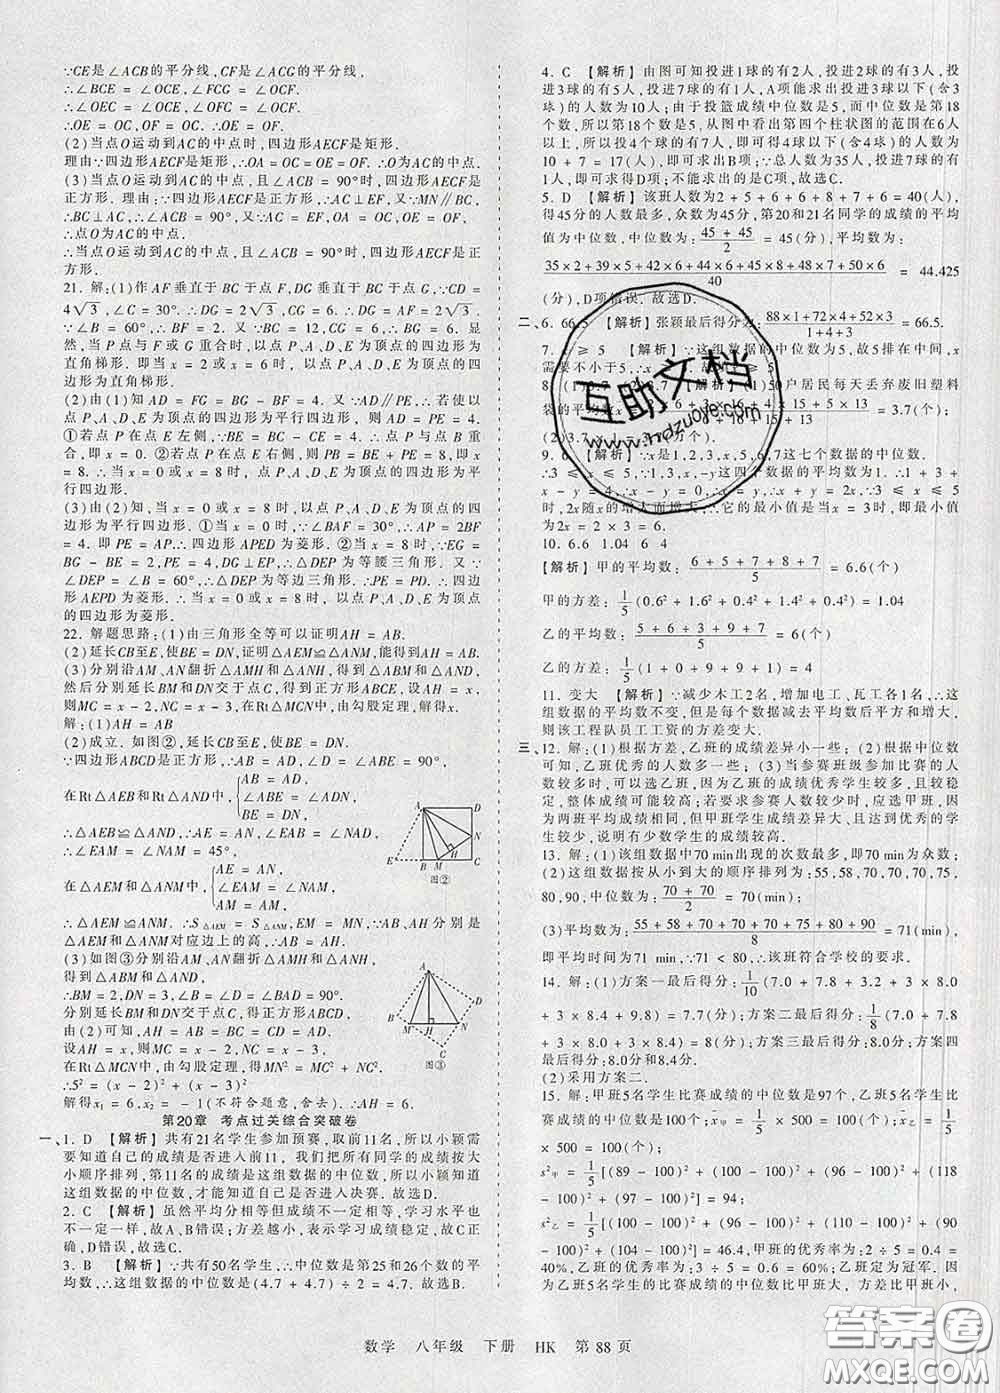 ∵CE是∠ACB的平分线,CF是∠ACG的平分线,
∴∠BCE = ∠OCE,∠FCG = ∠OCF.
∴∠OEC = ∠OCE,∠OFC = ∠OCF.
∴OE = OC,OF = OC. ∴OE = OF.
(2)当点O运动到AC的中点时,四边形AECF是矩形.
理由∵四边形AECF是矩形,∴OA = OC = OE = OF.
(3)当点O运动到AC的中点,且∠ACB = 90°时,四边形AECF是
正方形. 理由∵四边形AECF是正方形,∴AC⊥EF,又∵MN∥BC,
∴BC⊥AC,∴∠ACB = 90°,又∵AC = EF,OA = OC = OE = OF,
∴点O为AC的中点.
∴当点O运动到AC的中点,且∠ACB = 90°时,四边形AECF是正
方形.
21. 解:(1)作AF垂直于BC于点F,DG垂直于BC于点G,∵CD =
4√3,∠C = 30°,∴DG = 2√3,CG = 6. ∴AF = DG = 2√3.
∵∠B = 60°,∴BF = 2. 又∵DG = 2√3,DE = 4,∴EG = 2.
∴当点P与F或G重合时,以点P、A、D、E为顶点的四边形为
直角梯形. 即当x = 2或x = 6时,以点P、A、D、E为顶点的四
边形为直角梯形.
(2)由(1)知AD = FG = BG - BF = 4. 又∵AD∥PE,∴AD = PE
时,以点P、A、D、E为顶点的四边形为平行四边形,有两种情况.
①若点P在点E左侧,∵BP = BE - PE = 0,∴点P与点B重
合,即x = 0. ②若点P在点E右侧,∵BP = BE + PE = 4 + 4 =
8. ∴当x = 0或x = 8时,以点P、A、D、E为顶点的四边形
为平行四边形.
(3)由(2)知,当x = 0或x = 8时,以点P、A、D、E为顶点的四
边形为平行四边形. ①当x = 0时,∵∠BAF = 30°,∴AP = 2BF
= 4. 即PE = AP,∴四边形APED为菱形. ②当x = 8时,∵EG =
BG - BE = 2,∴PE = PG = 2. ∴DP = DE,△DEP为等腰三角形. 又
∵∠DEP = ∠B = 60°,∴△DEP为等边三角形. ∴PE = DE. ∴四边
形AEPD为菱形. ∴当x = 0或x = 8时,以点P、A、D、E为顶点
的四边形为菱形.
22. 解题思路:(1)由三角形全等可以证明AH = AB.
(2)延长CB至E,使BE = DN,证明△AEM≌△ANM,能得到AH = AB.
(3)分别沿AM、AN翻折△AMH和△ANH,得到△ABM和△AND,
然后分别延长BM和DN交于点C,得到正方形ABCE,设AH = x,
则MC = x - 2,NC = x - 3,在Rt△MCN中,由勾股定理,解得x.
解:(1)AH = AB
(2)成立. 如图②,延长CB至E,使BE = DN.
∵四边形ABCD是正方形,∴AB = AD,∠D = ∠ABE = 90°,
在Rt△AEB和Rt△AND中,
AB = AD,
∠ABE = ∠ADN,
BE = DN,
∴△AEB≌△AND,∴AE = AN,∠EAB = ∠NAD,
∴∠EAM = ∠NAM = 45°,
在△AEM和△ANM中,
AE = AN,
∠EAM = ∠NAM,
AM = AM,
∴△AEM≌△ANM. ∴S△AEM = S△ANM,EM = MN,∵AB、AH分别是
△AEM和△ANM对应边上的高,∴AB = AH.
(3)如图③分别沿AM、AN翻折△AMH和△ANH,得到△ABM和△AND,
∴BM = 2,DN = 3,∠B = ∠D = ∠BAD = 90°,
分别延长BM和DN交于点C,得正方形ABCD,
由(2)可知,AH = AB = BC = CD = AD.
设AH = x,则MC = x - 2,NC = x - 3,
在Rt△MCN中,由勾股定理,得MN² = MC² + NC²
∴5² = (x - 2)² + (x - 3)²
解得x₁ = 6,x₂ = -1(不符合题意,舍去). ∴AH = 6.
图②
图③
第20章 考点过关综合突破卷
一、1. D 【解析】共有21名学生参加预赛,取前11名,所以小颖
需要知道自己的成绩是否进入前11,我们把所有同学的成绩按大
小顺序排列,第11名的成绩是这组数据的中位数,所以小颖知道
这组数据的中位数,才能知道自己是否进入决赛. 故选D.
2. C 【解析】虽然平均分相等但成绩不一定相等,学习水平也
不一定一样,故A、B错误;方差越小,表示学习成绩稳定,故C正确,
D错误,故选C.
3. B 【解析】∵共有50名学生,∴中位数是第25和26个数的平
均数,∴这组数据的中位数是(4.7 + 4.7) ÷ 2 = 4.7. 故选B.
4. C 【解析】由图可知投进1球的有2人,投进2球的有3人,投进
3球的有5人,投进4球的有7人,A项能求出投进3球以下(含3
球)的人数为10人;由于投篮成绩中位数是5,而中位数是第18
个数,所以第18个数是5,从图中看出第4个柱状图的范围在6人
以上,所以投4个球的有7人,即可得4球以下(含4球)的人数为
10 + 7 = 17(人),即可求出B项;∵总人数为35人,投进3球有
1人,即可求得D项;不能求出的是C项,故选C.
5. D 【解析】该班人数为2 + 5 + 6 + 6 + 8 + 7 + 6 = 40(人),
得45分的人数最多,众数为45分,第20和21名同学的成绩的平均
值为中位数,中位数为:(45 + 45)/2 = 45(分),平均数为:
(35×2 + 39×5 + 42×6 + 44×6 + 45×8 + 48×7 + 50×6)/40 = 44.425
(分),D项错误. 故选D.
二、6. 66.5 【解析】张颖最后得分为:(88×1 + 72×4 + 52×3)/(1 + 4 + 3) = 66.5.
7. x ≥ 5 【解析】∵这组数据的中位数为5,故5排在中间,x
需要不小于5. 故x ≥ 5.
8. (1)3.7 3.7 【解析】(1)50户居民每天丢弃废旧塑料
袋的平均数 = 3.7(个).
(2)3.7
9. 6 【解析】∵x是1,2,3,x,5,6,7这七个数据的中位数.
∴3 ≤ x ≤ 5. ∵1,3,x,-y这四个数据的平均数为1. ∴1 + 3 +
x - y = 4,即x - y = 0. ∴x = y,∴x + y = 2x,∵3 ≤ x ≤ 5
时,2x随x的增大而增大,∴它的最小值是当x = 3时,即最小值
为2x = 2 × 3 = 6.
10. 6.6 1.04 6 4
【解析】甲的平均数:(6 + 5 + 7 + 8 + 7)/5 = 6.6(个)
甲的方差:1/5(0.6² + 1.6² + 0.4² + 1.4² + 0.4²) = 1.04
乙的平均数:(5 + 6 + 3 + 9 + 7)/5 = 6(个)
乙的方差:1/5(1 + 0 + 9 + 9 + 1) = 4
11. 变大 【解析】∵减少木工2名,增加电工、瓦工各1名,∴这
组数据的平均数不变,但是每个数据减去平均数后平方和增大,
则该工程队员工工资的方差变大.
三、12. 解:(1)根据方差,乙班的成绩差异小一些;(2)根据中位数
可知,乙班优秀的人数多一些;(3)当参赛班级参加比赛的人
数较多时,可以选乙班,因为乙班的成绩优秀学生较多,且较稳
定,整体成绩可能较高;若要求参赛人数较少时,应选甲班,因
为两班平均成绩一样,但甲班学生成绩差异较大,达到优秀的学
生较少,说明有少数学生的成绩较高.
13. 解:(1)该组数据中70 min出现的次数最多,即70 min为众数;
(2)这组数据按从小到大的顺序排列为:55,58,70,70,70,75,
80,90,中位数为:(70 + 70)/2 = 70(min);
(3)平均数为:(55 + 58 + 70 + 70 + 70 + 75 + 80 + 90)/8 = 71(min),
即平均时间为71 min,∵71 < 80,∴该班符合学校的要求.
14. 解:(1)方案一最后得分:1/10(3.2 + 7.0 + 7.8 + 3 × 8.0
+ 3 × 8.4 + 9.8) = 7.7(分);方案二最后得分:1/8(7.0 + 7.8
+ 3 × 8.0 + 3 × 8.4) = 8(分);方案三最后得分:8.0分;方案四
最后得分:8.0分和8.4分.
(2)采用方案二.
15. 解:甲班5名学生的比赛成绩的中位数是97个,乙班5名学生的
比赛成绩的中位数是100个;x甲 = 1/5 × 500 = 100(个),x乙 = 1/5
× 500 = 100(个);
s²甲 = 1/5[(89 - 100)² + (100 - 100)² + (96 - 100)² + (118
- 100)² + (97 - 100)²] = 94,
s²乙 = 1/5[(100 - 100)² + (95 - 100)² + (110 - 100)² + (91
- 100)² + (104 - 100)²] = 46.4,甲班的优秀率为:2 ÷ 5 = 0.4 =
40%,乙班的优秀率为:3 ÷ 5 = 0.6 = 60%;应选定乙班为冠军,因
为乙班5名学生的比赛成绩的中位数比甲班大,方差比甲班小,
数学 八年级 下册 HK 第88页
互助文档
www.hdzuoye.com
答案圈
MXQE.COM